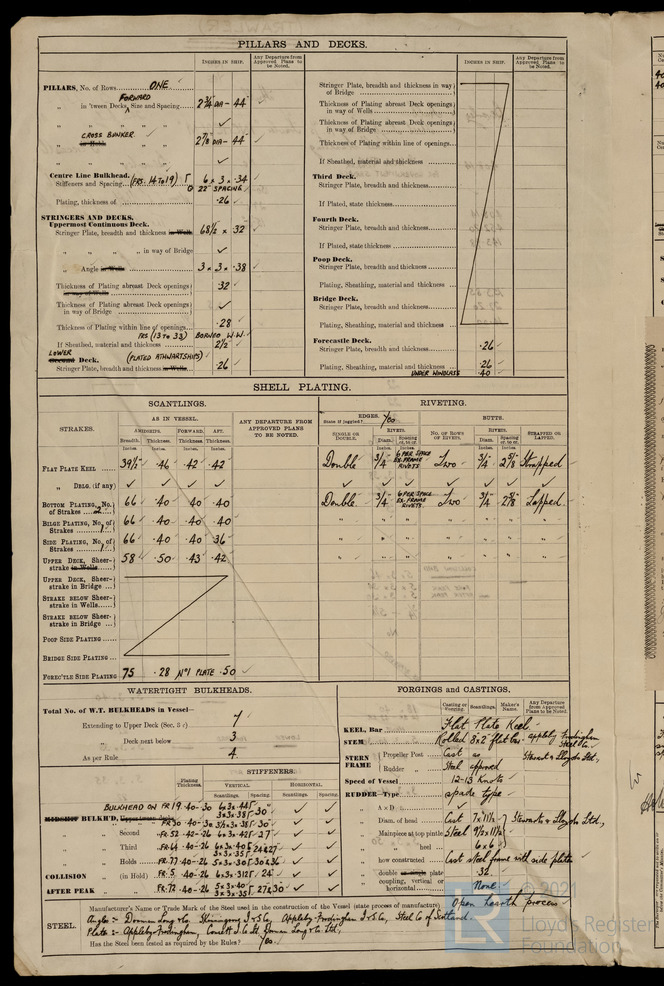 PILLARS AND DECKS.
INCHES IN SHIP.
Any Departure from Approved Plans to be Noted.
PILLARS, No. of Rows ONE
FORWARD
„ in 'tween Decks, Size and Spacing 2¾ DIA - 44
CROSS BUNKER
2⅞ DIA - 44
Centre Line Bulkhead.
Stiffeners and Spacing (FRS. 14 TO 19) 6 × 3 × .34
22" SPACING
Plating, thickness of .26
STRINGERS AND DECKS.
Uppermost Continuous Deck.
Stringer Plate, breadth and thickness in Wells 68½ × .32
„ „ „ in way of Bridge
„ Angle in Wells 3 × 3 × .38
Thickness of Plating abreast Deck openings in way of Wells .32
Thickness of Plating abreast Deck openings in way of Bridge
Thickness of Plating within line of openings .28
FRS (13 TO 33) BORNEO W.W.
If Sheathed, material and thickness 2½
LOWER
Second Deck. (PLATED ATHWARTSHIPS)
Stringer Plate, breadth and thickness in Wells .26
INCHES IN SHIP.
Any Departure from Approved Plans to be Noted.
Stringer Plate, breadth and thickness in way of Bridge
Thickness of Plating abreast Deck openings in way of Wells
Thickness of Plating abreast Deck openings in way of Bridge
Thickness of Plating within line of openings
If Sheathed, material and thickness
Third Deck.
Stringer Plate, breadth and thickness
If Plated, state thickness
Fourth Deck.
Stringer Plate, breadth and thickness
If Plated, state thickness
Poop Deck.
Stringer Plate, breadth and thickness
Plating, Sheathing, material and thickness
Bridge Deck.
Stringer Plate, breadth and thickness
Plating, Sheathing, material and thickness
Forecastle Deck.
Stringer Plate, breadth and thickness .26
Plating, Sheathing, material and thickness .26
UNDER WINDLASS .40
SHELL PLATING.
SCANTLINGS.
RIVETING.
STRAKES.
AS IN VESSEL.
AMIDSHIPS. FORWARD. AFT.
Breadth. Thickness. Thickness. Thickness.
Inches. Inches. Inches. Inches.
ANY DEPARTURE FROM APPROVED PLANS TO BE NOTED.
EDGES.
State if joggled? Yes
BUTTS.
SINGLE OR DOUBLE.
RIVETS.
Diam. Spacing cr. to cr.
NO. OF ROWS OF RIVETS.
RIVETS.
Diam. Spacing cr. to cr.
STRAPPED OR LAPPED.
FLAT PLATE KEEL 39½ .46 .42 .42 Double ¾ 6 PER SPACE EX. FRAME RIVETS Two ¾ 2⅝ Strapped
„ DBLG. (if any)
BOTTOM PLATING, No. of Strakes 2 66 .40 .40 .40 Double ¾ 6 PER SPACE EX. FRAME RIVETS. Two ¾ 2⅝ Lapped
BILGE PLATING, No. of Strakes 1 66 .40 .40 .40
SIDE PLATING, No. of Strakes 1 66 .40 .40 .36
UPPER DECK, Sheer-strake in Wells 58 .50 .43 .42
UPPER DECK, Sheer-strake in Bridge
STRAKE BELOW Sheer-strake in Wells
STRAKE BELOW Sheer-strake in Bridge
POOP SIDE PLATING
BRIDGE SIDE PLATING
FOREC'TLE SIDE PLATING 75 .28 No 1 PLATE .50
WATERTIGHT BULKHEADS.
Total No. of W.T. BULKHEADS in Vessel—
Extending to Upper Deck 7
„ Deck next below 3
As per Rule 4
Plating Thickness.
STIFFENERS.
VERTICAL HORIZONTAL
Scantlings. Spacing. Scantlings. Spacing.
BULKHEAD ON FR 19
MIDSHIP BULKH'D
„ „ Second FR 52 .42-.26
„ „ Third FR 64
„ „ Holds FR 77
COLLISION (in Hold) FR. 5 .40-.26 24
AFTER PEAK FR. 72 .40-.26
FORGINGS and CASTINGS.
Casting or Forging.
Scantlings.
Maker's Name.
Any Departure from Approved Plans to be Noted.
KEEL, Bar Flat Plate Keel
STEM Rolled 8×2 flat bar Appleby Frodingham Steel Co.
STERN FRAME
Propeller Post Cast as
Rudder „ Steel approved
Stewarts & Lloyds Ltd.,
Speed of Vessel 12-13 Knots
RUDDER—Type spade type
„ A × D
„ Diam. of head Cast Stewarts & Lloyds Ltd.,
„ Mainpiece at top pintle Steel
„ heel 6 × 6
„ how constructed Cast steel frame with side plates
„ double or single plate .32
„ coupling, vertical or horizontal None
STEEL.
Manufacturer's Name or Trade Mark of the Steel used in the construction of the Vessel (state process of manufacture) Open hearth process
Angles :- Dorman Long & Co. Skinningrove I & S Co, Appleby-Frodingham I & S Co, Steel Co of Scotland.
Plates :- Appleby-Frodingham, Consett I Co Ld. Dorman Long & Co. Ltd.
Has the Steel been tested as required by the Rules? Yes.
© 2021
LR
Lloyd's Register
Foundation